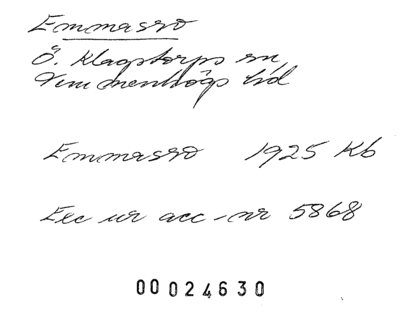 Emmasro
Ö. Klagstorps sn,
Vemmenhögs hd
Emmasro 1925 Kb
Exc ur acc-nr 5868
00024630